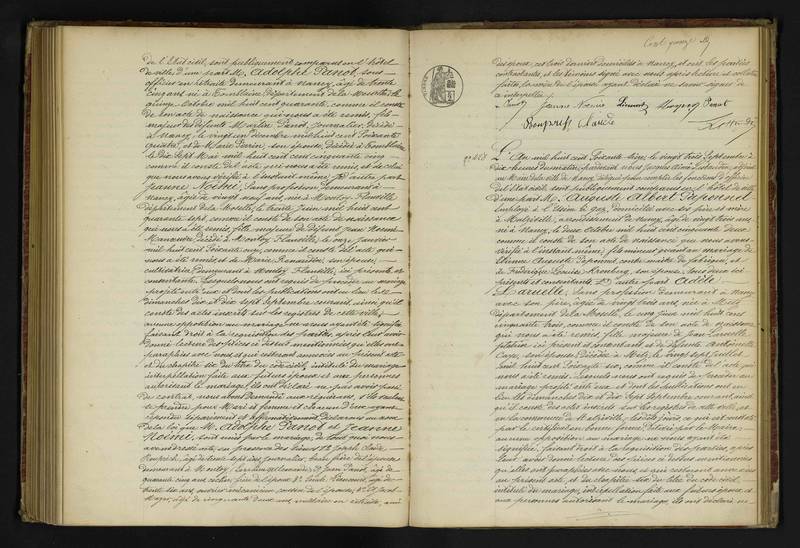 de l'Etat civil, sont publiquement comparus en l'hôtel
de ville, d'une part M. Adolphe Panot, sous-
officier en retraite demeurant à Nancy, âgé de trente
cinq ans né à Tomblaine, département de la Meurthe, le
quinze Octobre mil huit cent quarante, comme il conste
de son acte de naissance qui nous a été remis, fils
majeur de défunts Martin Panot, journalier, décédé
à Nancy, le vingt cinq décembre mil huit cent soixante
quatre, et de Marie Perrin, son épouse, décédée à Tomblaine
le dix sept Mai mil huit cent cinquante cinq
comme il conste de l'acte qui nous a été remis, et de celui
que nous avons vérifié à l'instant même; d'autre part
Jeanne Noémie, sans profession, demeurant à
Nancy, âgée de vingt neuf ans, née à Montoy Flanville
département de la Moselle, le trente Juin mil huit cent
quarante sept, comme il conste de son acte de naissance
qui nous a été remis, fille majeure de défunt Jean
décédé à Montoy Flanville, le onze janvier
mil huit cent soixante onze, comme il conste de l'acte qui
nous a été remis et de Marie son épouse,
cultivatrice, demeurant à Montoy Flanville, ici présente et
consentante. Lesquels nous ont requis de procéder au mariage
projeté entre eux et dont les publications ont eu lieu les
dimanches dix et dix sept Septembre courant, ainsi qu'il
conste des actes inscrits sur les registres de cette ville;
aucune opposition au mariage ne nous ayant été signifiée
faisant droit à la réquisition des parties, après leur avoir
donné lecture des pièces ci dessus mentionnées qu'elles ont
paraphées avec nous et qui resteront annexées au présent acte
et du chapitre six du titre du code civil, intitulé du mariage
interpellation faite aux futurs époux et aux personnes
autorisant le mariage, ils ont déclaré ne pas avoir passé
de contrat, nous avons demandé aux requérants, s'ils veulent
se prendre pour Mari et femme et chacun d'eux ayant
répondu séparément et affirmativement, déclarons au nom
de la loi que M. Adolphe Panot et Jeanne
Noémie, sont unis par le mariage; de tout quoi nous
avons dressé acte en présence des Sieurs 1° Joseph
âgé de trente sept ans, journalier, beau frère de l'épouse,
demeurant à Montoy 2° Jean Panot, âgé de
quarante cinq ans cocher, frère de l'époux 3° âgé de
trente six ans, ouvrier mécanicien cousin de l'épouse, 4°
Mayer, âgé de cinquante deux ans, militaire en retraite, ami
Cent quinze
des époux, ces trois derniers domiciliés à Nancy, et ont les parties
contractantes, et les témoins signé avec nous après lecture et collation
faite, la mère de l'épouse ayant déclaré ne savoir signer de
ce interpellée.
Panot Jeanne Noémie Mayer Panot
N° 417
L'An mil huit cent soixante seize le vingt trois Septembre à
dix heures du matin, pardevant nous adjoint
au Maire de la ville de Nancy délégué pour remplir les fonctions d'officier
de l'Etat civil, sont publiquement comparus en l'hôtel de ville,
d'une part M. Auguste Albert Duponcel
Employé à l'Usine à gaz, domicilié avec ses père et mère
à Maxéville, arrondissement de Nancy, âgé de vingt trois ans
né à Nancy, le deux Octobre mil huit cent cinquante deux
comme il conste de son acte de naissance que nous avons
vérifié à l'instant même; fils mineur quant au mariage de
Etienne Auguste Duponcel contre maître de fabrique, et
de Frédérique Louise Kremberg, son épouse, tous deux ici
présents et consentants; d'autre part Adèle
Laruelle, sans profession, demeurant à Nancy
avec son père, âgée de vingt trois ans, née à Metz
département de la Moselle, le cinq Juin mil huit cent
cinquante trois, comme il conste de son acte de naissance
qui nous a été remis, fille majeure de Jean Laruelle
ici présent et consentant et de défunte Antoinette
son épouse décédée à Metz, le vingt sept juillet
mil huit cent soixante six, comme il conste de l'acte qui
nous a été remis. Lesquels nous ont requis de procéder au
mariage projeté entre eux et dont les publications ont eu
lieu les dimanches dix et dix Sept Septembre courant, ainsi
qu'il conste des actes inscrits sur les registres de cette ville, et
en la commune de Maxéville, dont acte, ainsi que c'est constaté
par le certificat en bonne forme délivré par le Maire;
aucune opposition au mariage ne nous ayant été
signifiée, faisant droit à la réquisition des parties, après
leur avoir donné lecture des pièces ci dessus mentionnées
qu'elles ont paraphées avec nous et qui resteront annexées
au présent acte, et du chapitre six du titre du code civil,
intitulé du mariage, interpellation faite aux futurs époux et
aux personnes autorisant le mariage, ils ont déclaré ne